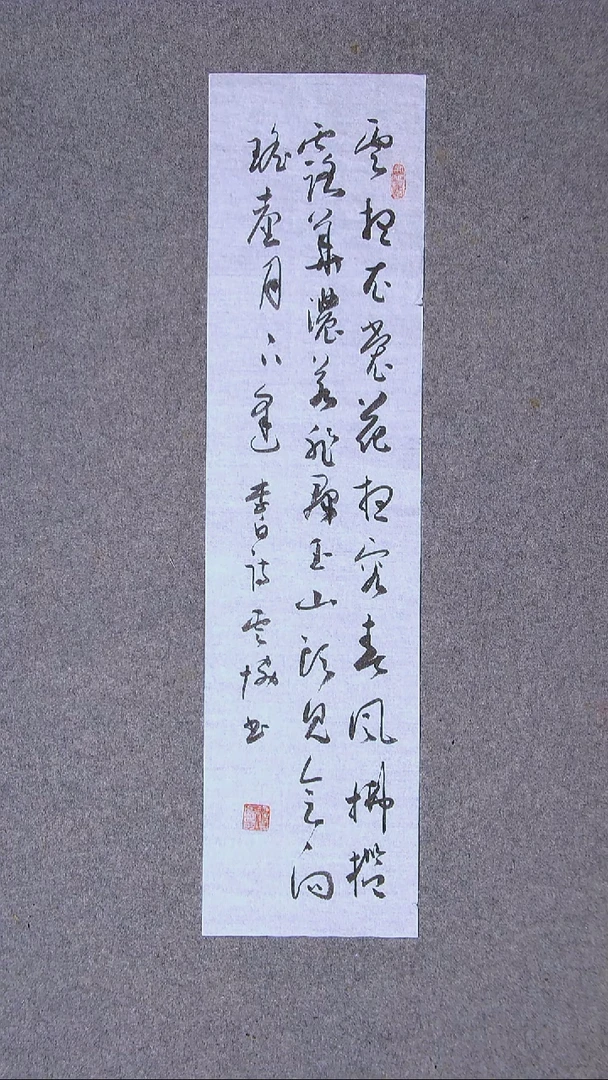 雲想衣裳花想容春風拂檻
露華濃若非羣玉山頭見會向
瑤臺月下逢 李白詩 雲 書